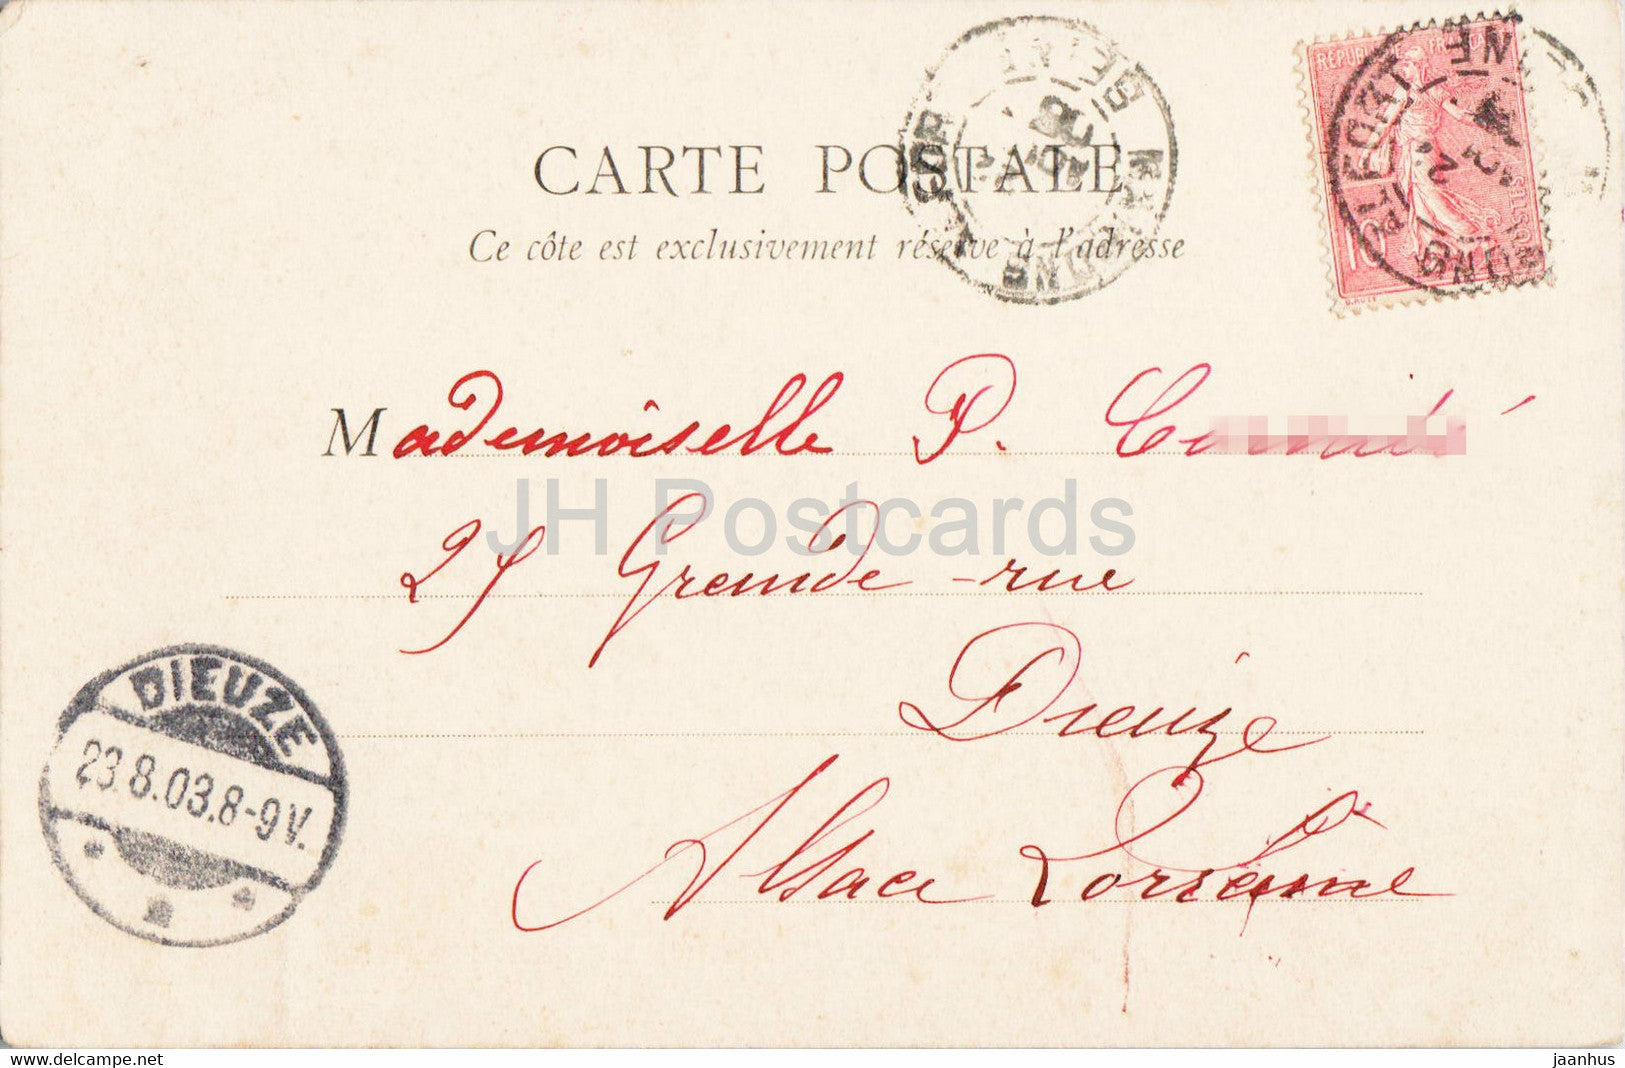 CARTE POSTALE
Ce côte est exclusivement réservé à l'adresse
RÉPUBLIQUE FRANÇAISE
10
Mademoiselle P.
JH Postcards
25 Grande-rue
Dieuze
Alsace Lorraine
DIEUZE
23.8.03.8-9V.
www.delcampe.net
jaanhus